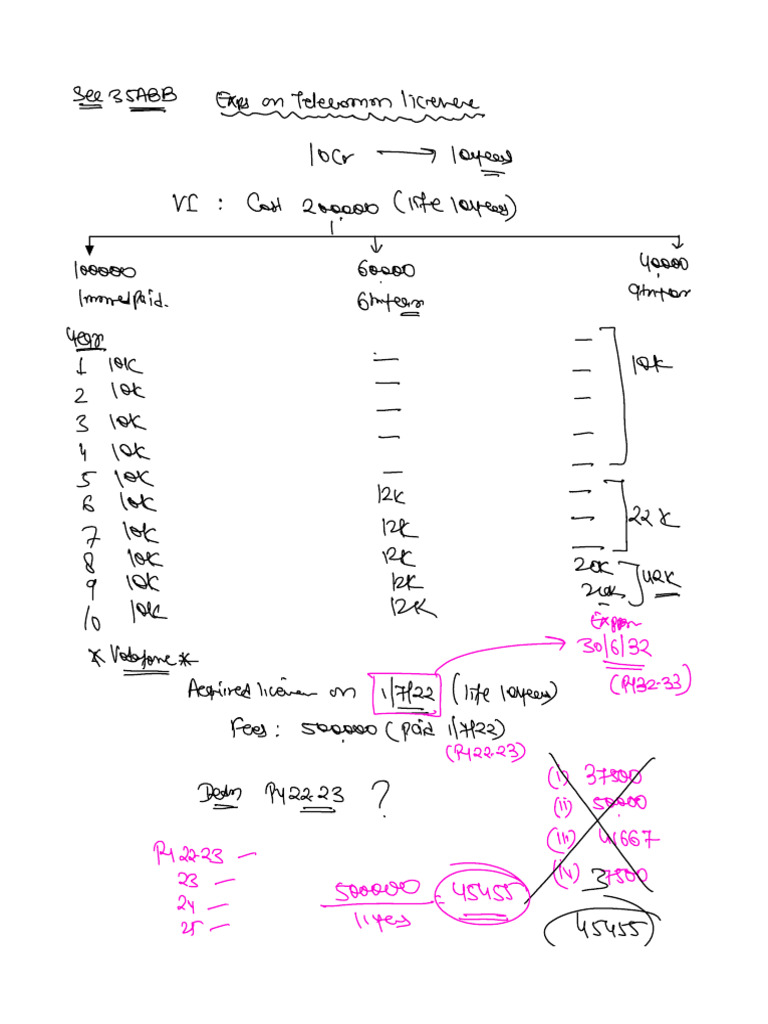 See 35ABB Exps on Telecommn licence
10Cr → 10years
VI : Cost 200000 (life 10years)
100000 60000 40000
Immed paid. 6th year 9th year
Year
1 10K — —
2 10K — —
3 10K — —
4 10K — —
5 10K — —
10K
6 10K 12K —
7 10K 12K —
8 10K 12K —
22K
9 10K 12K 20K
10 10K 12K 20K
42K
* Vodafone *
30/6/32
(PY32-33)
Acquired licence on 1/7/22 (life 10years)
Fees: 500000 (paid 1/7/22)
(PY22-23)
Dedn PY 22-23 ?
(i) 37500
(ii) 50000
(iii) 41667
(iv) 37500
PY 22-23 —
23 —
24 —
25 —
500000 = 45455
11years
(45455)